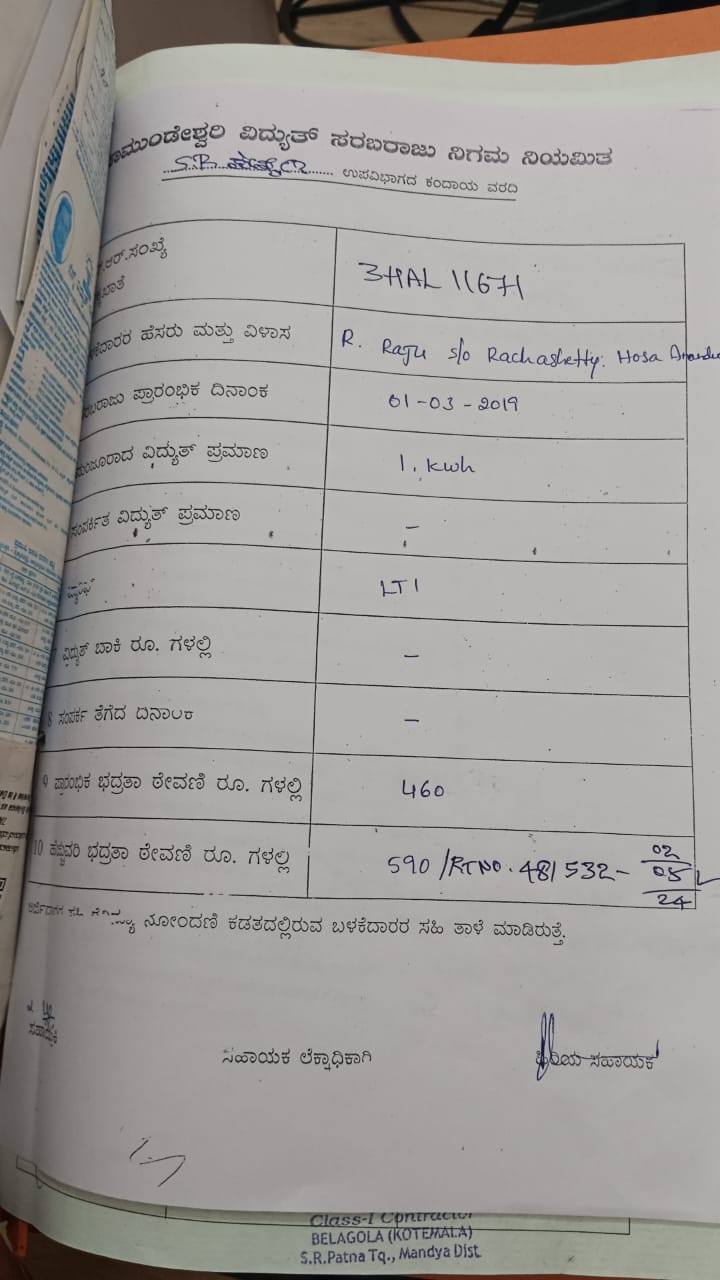 ಾಮುಂಡೇಶ್ವರಿ ವಿದ್ಯುತ್ ಸರಬರಾಜು ನಿಗಮ ನಿಯಮಿತ
ಉಪವಿಭಾಗದ ಕಂದಾಯ ವರದಿ
.ಆರ್.ಸಂಖ್ಯೆ
ಖಾತೆ
3HAL 11671
ದಾರರ ಹೆಸರು ಮತ್ತು ವಿಳಾಸ
R. Raju s/o Rachashetty. Hosa
ರಬರಾಜು ಪ್ರಾರಂಭಿಕ ದಿನಾಂಕ
01-03-2019
ಮಂಜೂರಾದ ವಿದ್ಯುತ್ ಪ್ರಮಾಣ
1. kwh
ಸಂಪರ್ಕಿತ ವಿದ್ಯುತ್ ಪ್ರಮಾಣ
–
LT1
ವಿದ್ಯುತ್ ಬಾಕಿ ರೂ. ಗಳಲ್ಲಿ
–
8 ಸಂಪರ್ಕ ತೆಗೆದ ದಿನಾಂಕ
–
9 ಪ್ರಾರಂಭಿಕ ಭದ್ರತಾ ಠೇವಣಿ ರೂ. ಗಳಲ್ಲಿ
460
10 ಹೆಚ್ಚುವರಿ ಭದ್ರತಾ ಠೇವಣಿ ರೂ. ಗಳಲ್ಲಿ
590 /RTNO. 481532 - 02/05/24
ನೋಂದಣಿ ಕಡತದಲ್ಲಿರುವ ಬಳಕೆದಾರರ ಸಹಿ ತಾಳೆ ಮಾಡಿರುತ್ತೆ.
ಸಹಾಯಕ
ಸಹಾಯಕ ಲೆಕ್ಕಾಧಿಕಾಗಿ
ಹಿರಿಯ ಸಹಾಯಕ
Class-I Contractor
BELAGOLA (KOTEMALA)
S.R.Patna Tq., Mandya Dist